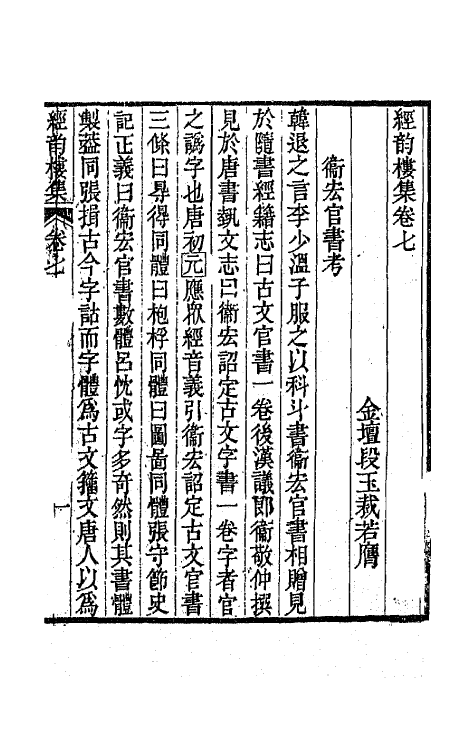 經韵樓集卷七
金壇段玉裁若膺
衞宏官書考
韓退之言李少溫子服之以科斗書衞宏官書相贈見
於隨書經籍志曰古文官書一卷後漢議郎衞敬仲撰
見於唐書藝文志曰衞宏詔定古文字書一卷字者官
之譌字也唐初元應眾經音義引衞宏詔定古文官書
三條曰㝵得同體曰枹桴同體曰圖啚同體張守節史
記正義曰衞宏官書數體呂忱或字多奇然則其書體
製葢同張揖古今字詁而字體爲古文籒文唐人以爲
經韵樓集 卷七 一